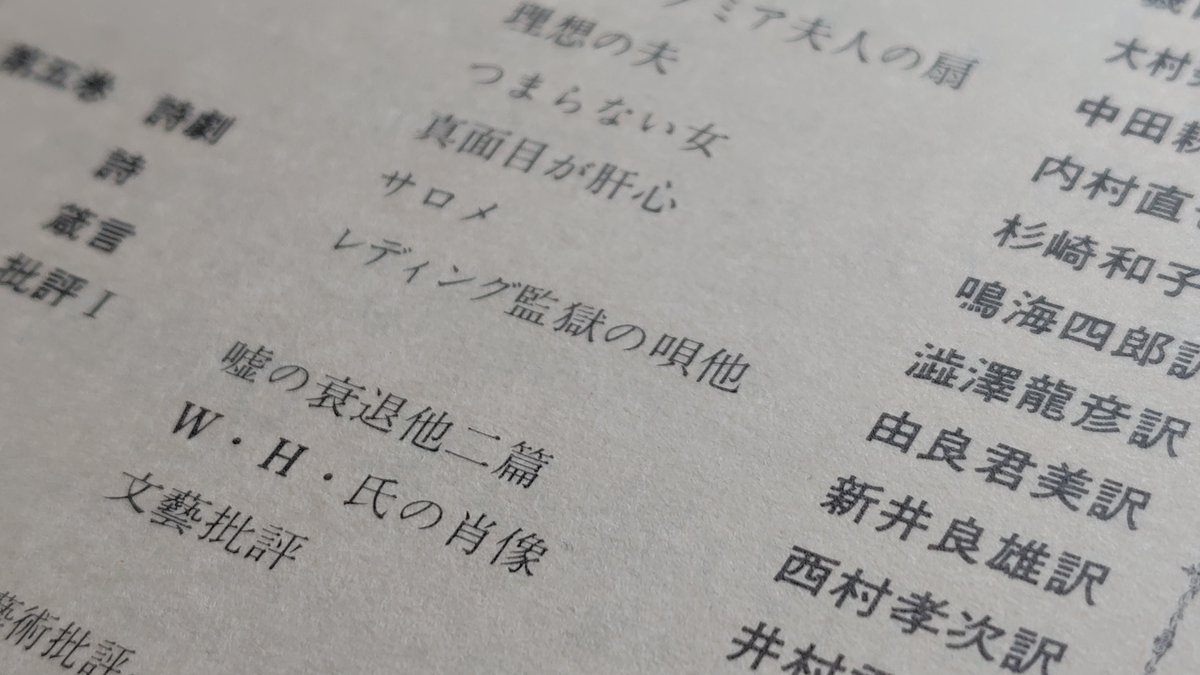 大村
ミア夫人の扇 中田耕
理想の夫 内村直
つまらない女 杉崎和子
真面目が肝心 鳴海四郎訳
第五巻 詩劇 サロメ 澁澤龍彦訳
詩 レディング監獄の唄他 由良君美訳
箴言 新井良雄訳
批評I 嘘の衰退他二篇 西村孝次訳
W・H・氏の肖像 井村
文藝批評
藝術批評